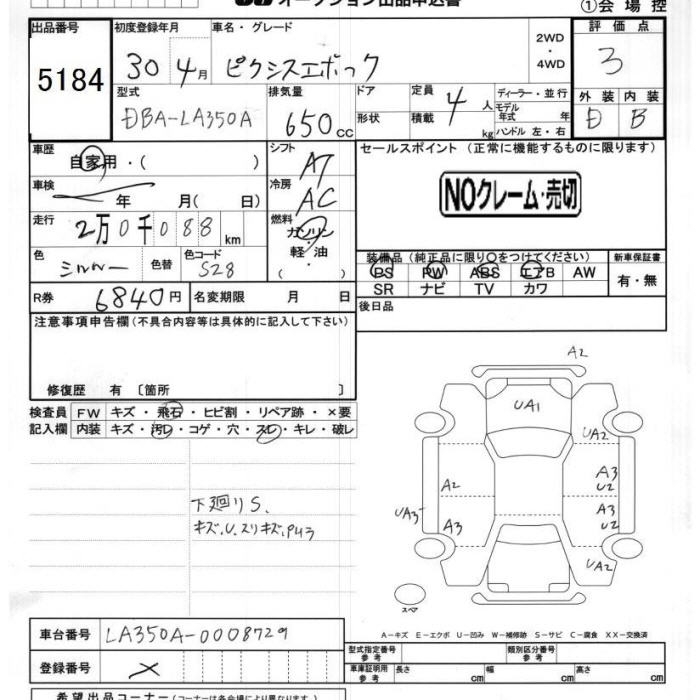 オークション出品申込書
①会場控
出品番号 初度登録年月 車名・グレード 2WD・4WD 評価点
5184 30 4月 ピクシスエポック 3
型式 排気量 ドア 定員 4人 ディーラー・並行 外装 内装
DBA-LA350A 650cc 形状 積載 kg モデル年式 年式 ハンドル 左・右 D B
車歴 シフト セールスポイント (正常に機能するものに限ります)
自家用・( ) AT
車検 冷房 NOクレーム・売切
年 月( 日) AC
走行 燃料
2万0千088km ガソリン・軽・油 ( )
装備品 (純正品に限り○をつけてください) 新車保証書
色 色替 色コード PS PW ABS エアB AW 有・無
シルバー S28 SR ナビ TV カワ
R券 6840円 名変期限 月 日 後日品
注意事項申告欄 (不具合内容等は具体的に記入して下さい)
修復歴 有 〔箇所 〕
検査員 FW キズ・飛石・ヒビ割・リペア跡・×要
記入欄 内装 キズ・汚レ・コゲ・穴・スレ・キレ・破レ
A2
UA1
UA2
A2 A3
U2
UA3 A3 A3
U2
UA2
下廻りS.
キズ、U、スリキズ、P43
スペア
A-キズ E-エクボ U-凹み W-補修跡 S-サビ C-腐食 XX-交換済
車台番号 LA350A-0008729
型式指定番号 参考 類別区分番号 参考
登録番号 ×
車庫証明用 参考 長さ cm 幅 cm 高さ cm
希望出品コーナー (コーナーは各会場により異なります)